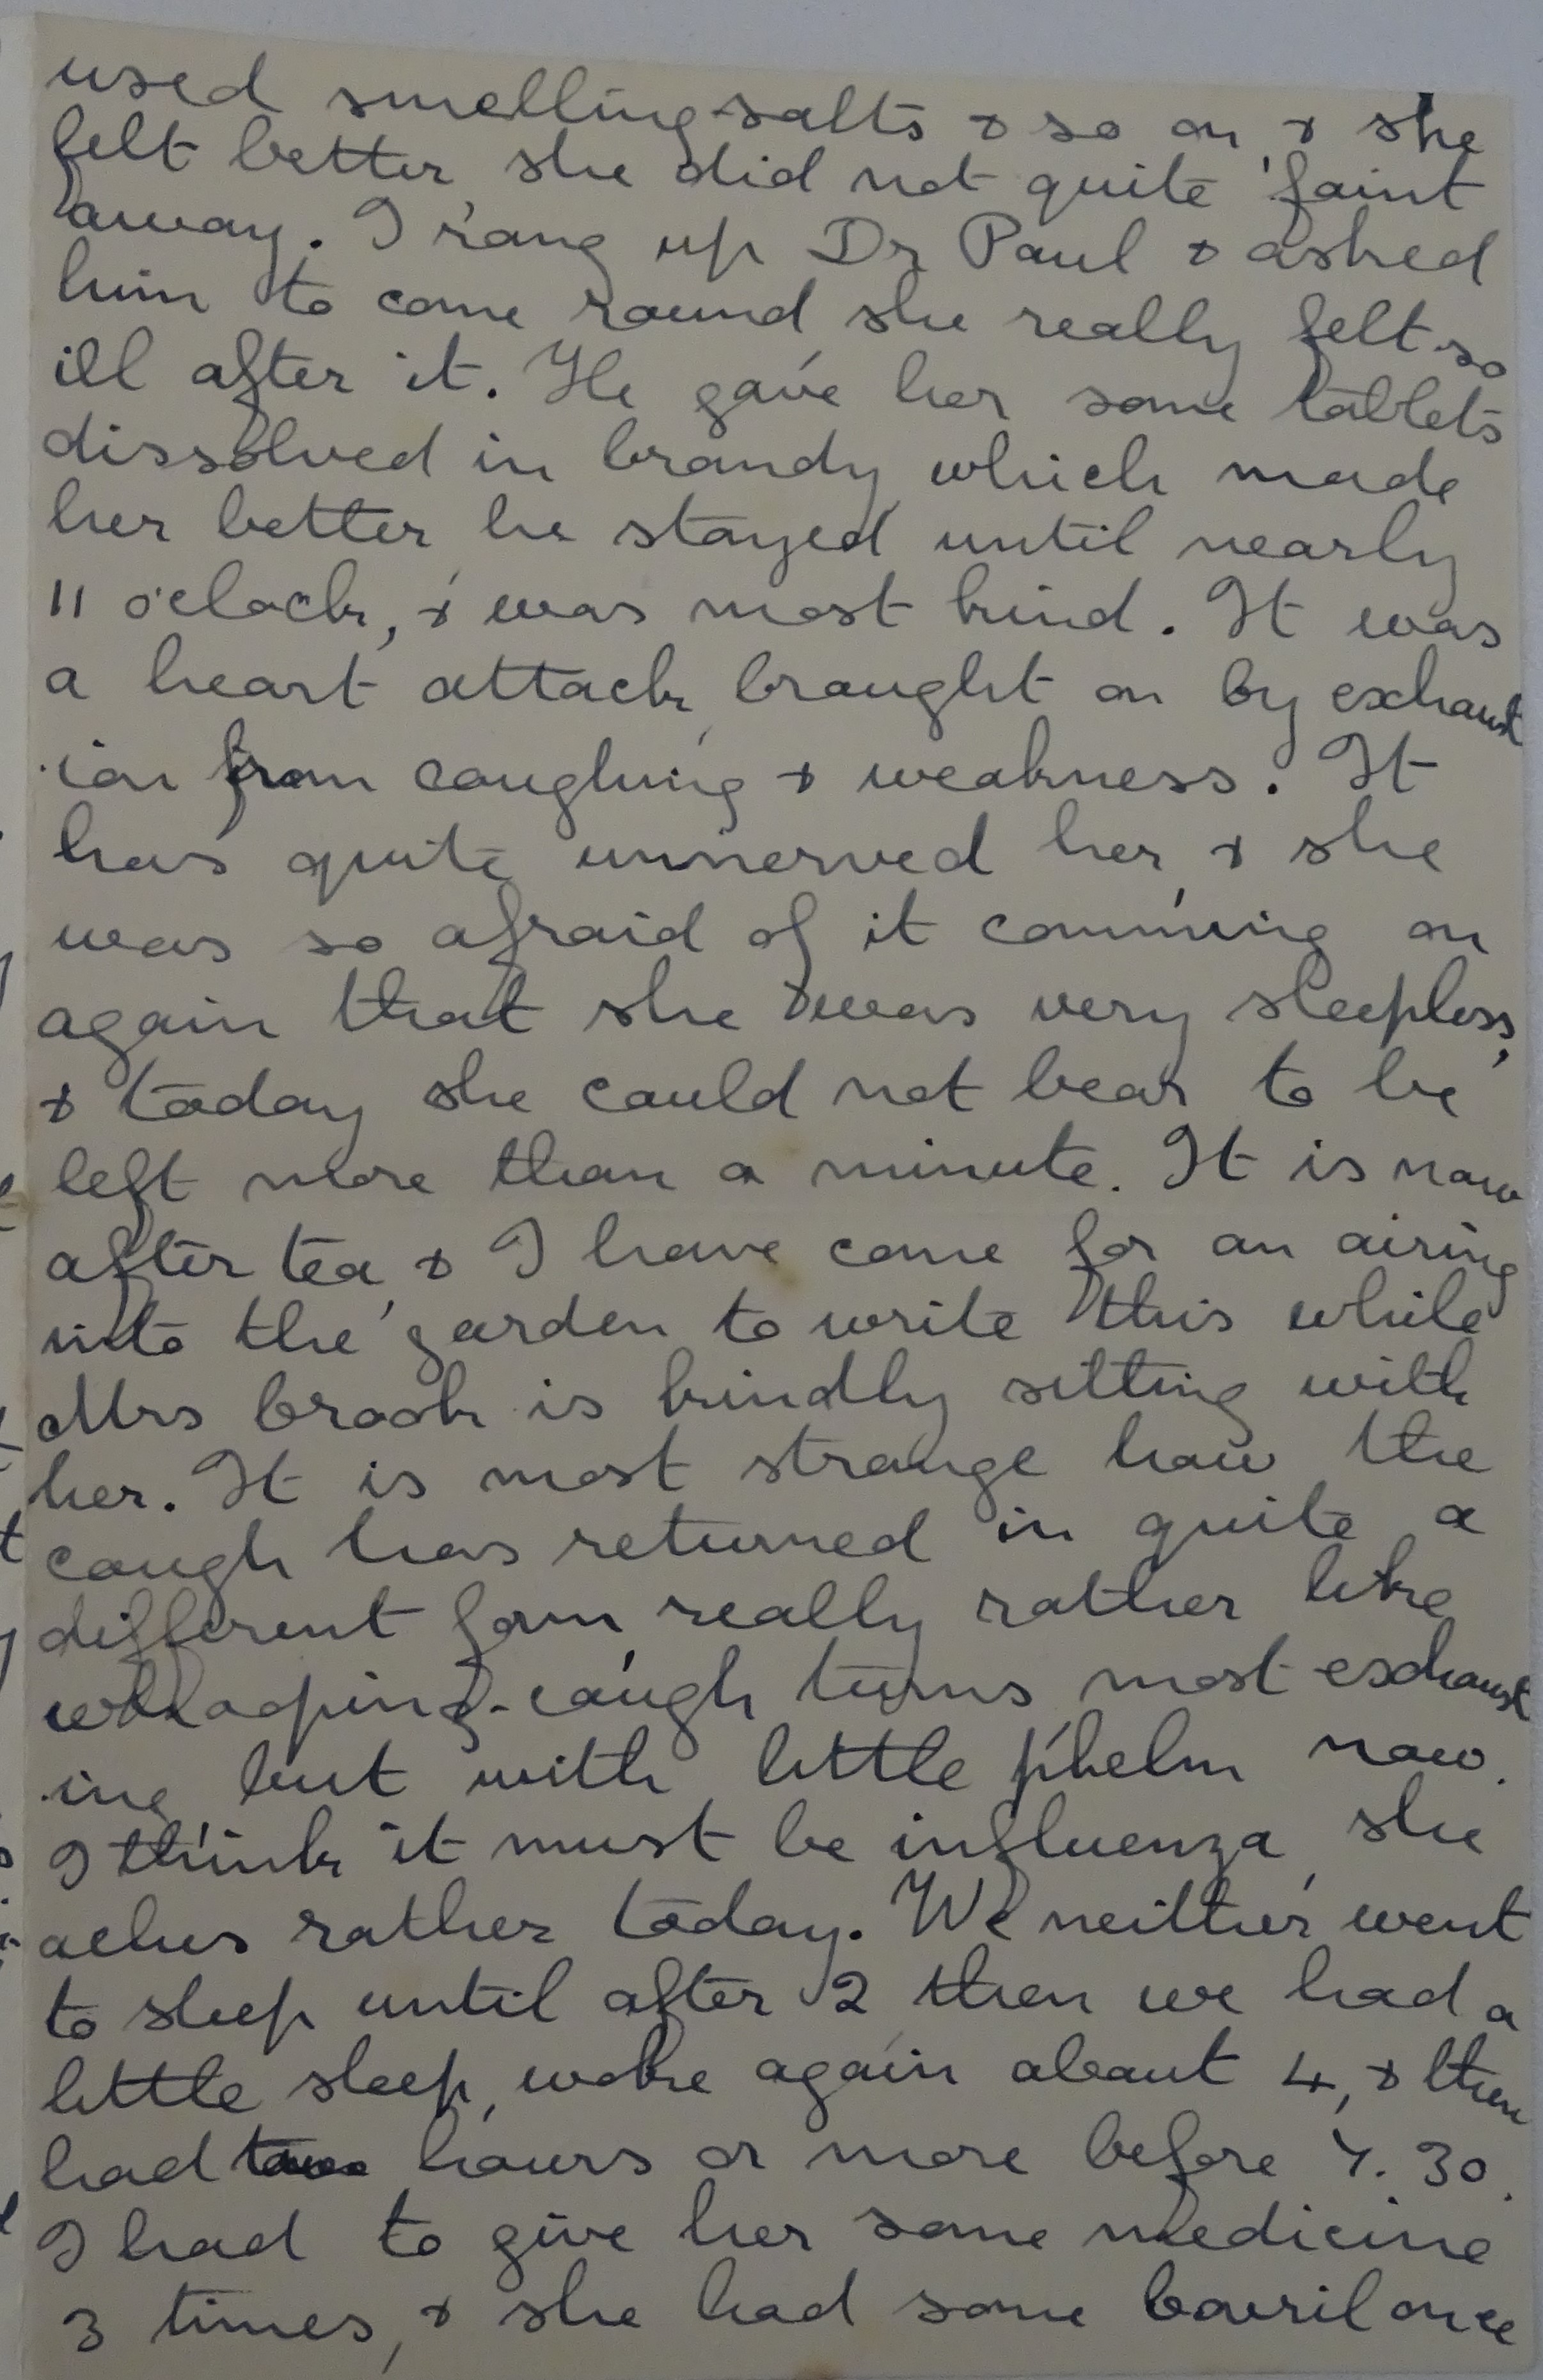 used smelling-salts & so on, & she
felt better, she did not quite faint
away. I rang up Dr Paul & asked
him to come round she really felt so
ill after it. He gave her some tablets
dissolved in brandy, which made
her better, he stayed until nearly
11 o'clock, & was most kind. It was
a heart attack, brought on by exhaust
-ion from coughing & weakness. It
has quite unnerved her, & she
was so afraid of it comming on
again that she was very sleepless,
& today she could not bear to be
left more than a minute. It is now
after tea, & I have come for an airing
into the garden to write this while
Mrs brook is kindly sitting with
her. It is most strange how the
cough has returned in quite a
different form, really rather like
whooping-cough turns, most exhaust
-ing, but with little phelm now.
I think it must be influenza, she
aches rather today. We neither went
to sleep until after 2, then we had a
little sleep, woke again about 4, & then
had two hours or more before 7.30.
I had to give her some medicine
3 times, & she had some bovril once